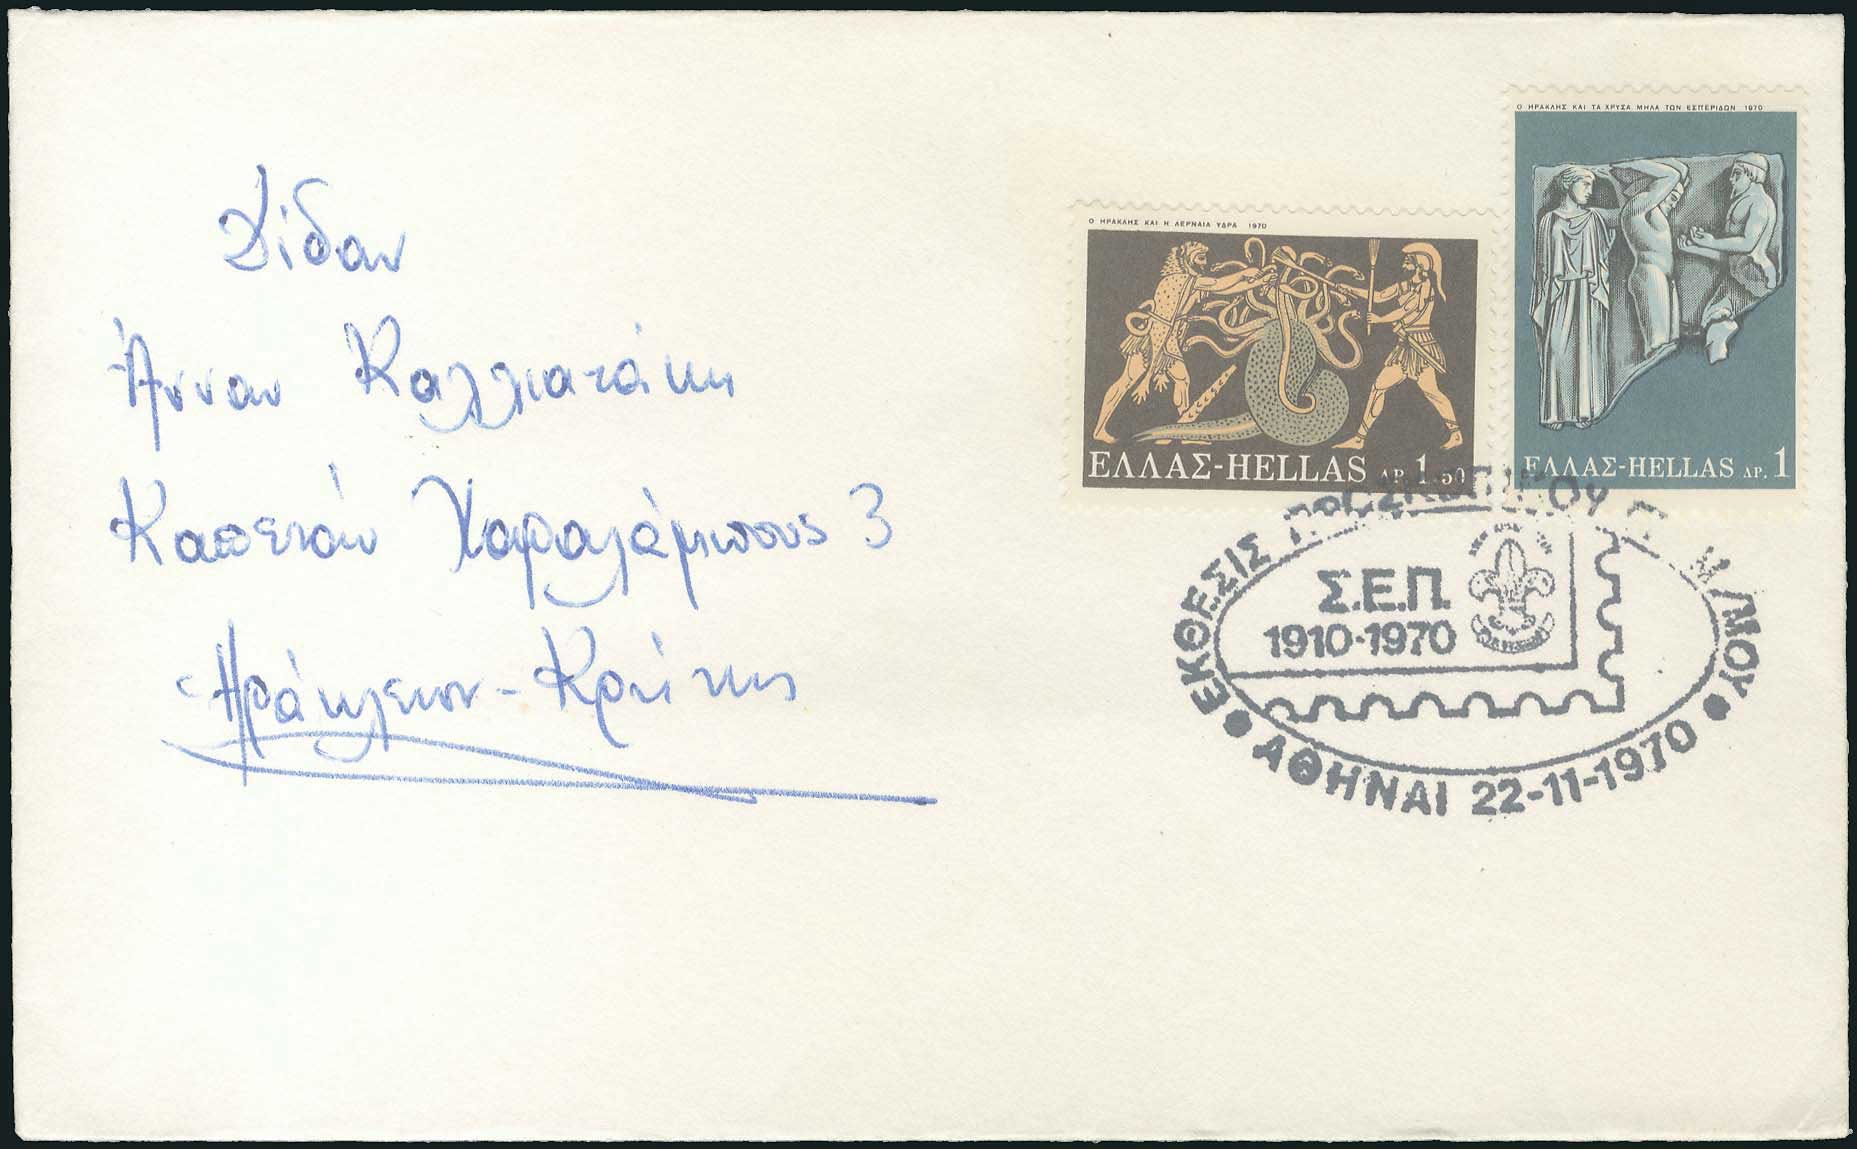 Δίδαν
Άνναν Καλλιατάκη
Καπετάν Χαραλάμπους 3
Ηράκλειον - Κρήτης
Ο ΗΡΑΚΛΗΣ ΚΑΙ Η ΛΕΡΝΑΙΑ ΥΔΡΑ 1970
ΕΛΛΑΣ-HELLAS ΔΡ. 1.50
Ο ΗΡΑΚΛΗΣ ΚΑΙ ΤΑ ΧΡΥΣΑ ΜΗΛΑ ΤΩΝ ΕΣΠΕΡΙΔΩΝ 1970
ΕΛΛΑΣ-HELLAS ΔΡ. 1
ΕΚΘΕΣΙΣ ΠΡΟΣΚΟΠΙΚΟΥ
Σ.Ε.Π.
1910-1970
ΑΘΗΝΑΙ 22-11-1970